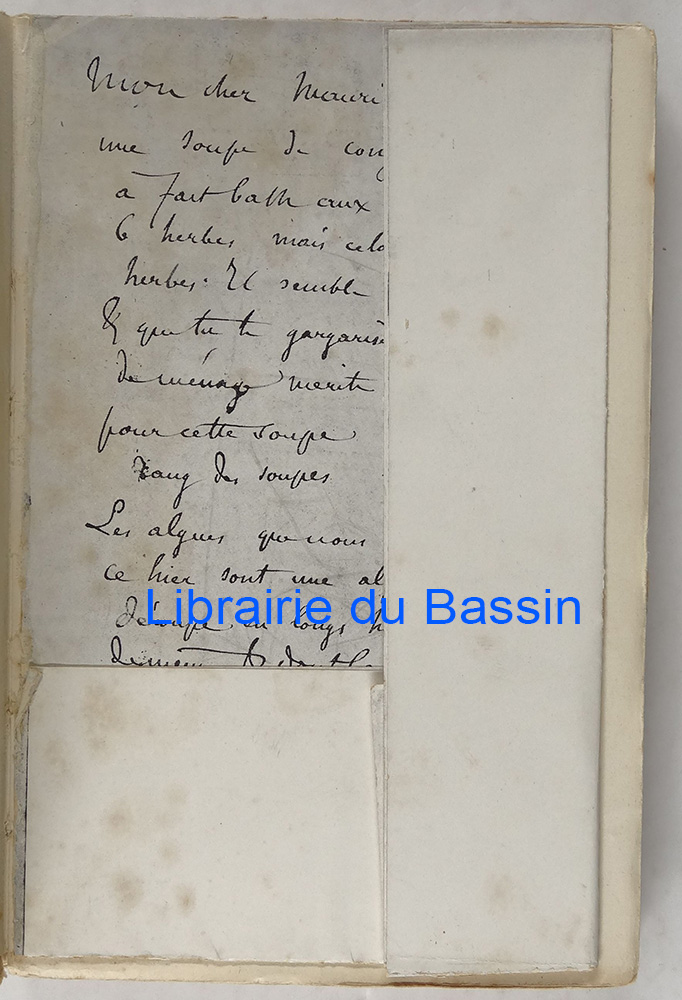 Mon cher Mauri
une soupe de con
à Fort Bath aux
6 herbes mais cela
herbes. Il semble
& que tu te gargarise
de ménage merite
pour cette soupe
rang des soupes
Les algues que nous
ce hier sont une al
Librairie du Bassin
découpé en longs